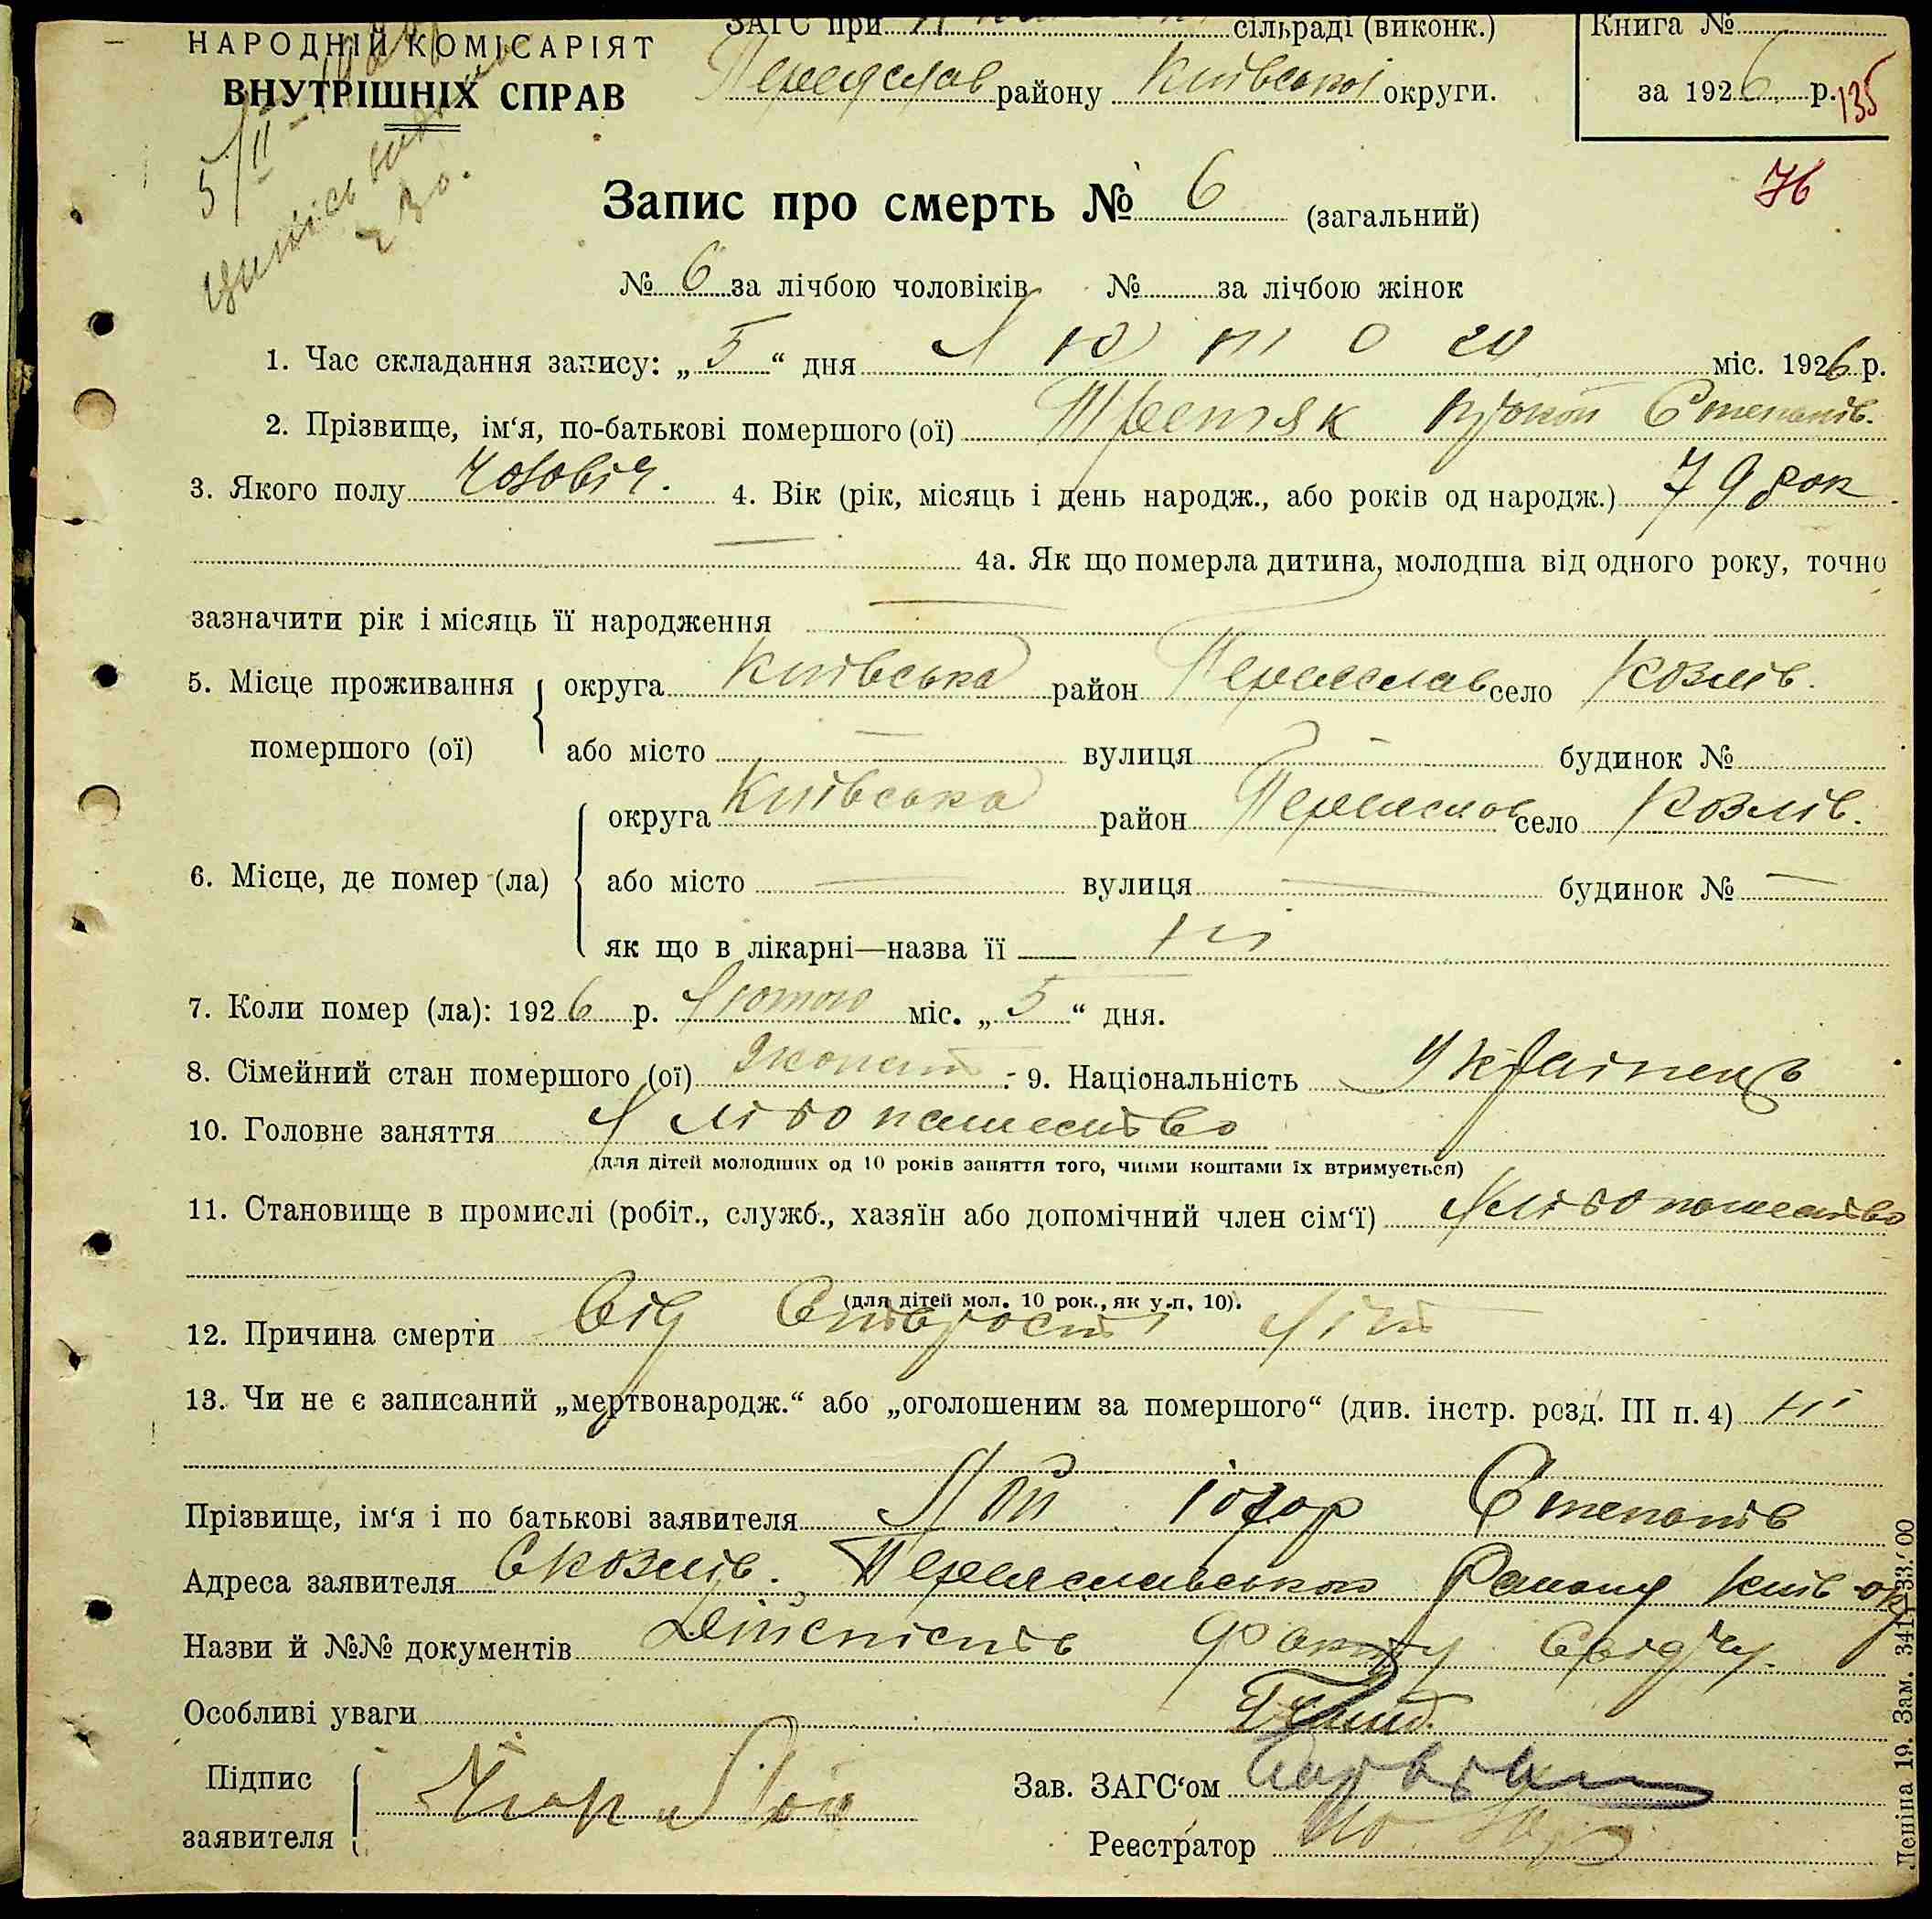 НАРОДНІЙ КОМІСАРІЯТ
ВНУТРІШНІХ СПРАВ
ЗАГС при сільраді (виконк.)
Переяслав району Київської округи.
Книга №
за 1926 р.
135
76
5/II
Запис про смерть № 6 (загальний)
№ 6 за лічбою чоловіків № за лічбою жінок
1. Час складання запису: „5“ дня Лютого міс. 1926 р.
2. Прізвище, ім‘я, по-батькові помершого (ої) Третяк Прокоп Степанів.
3. Якого полу Чоловіч. 4. Вік (рік, місяць і день народж., або років од народж.) 79 рок.
4а. Як що померла дитина, молодша від одного року, точно
зазначити рік і місяць її народження
5. Місце проживання помершого (ої) округа Київська район Переяслав село Козлів.
або місто — вулиця — будинок №
6. Місце, де помер (ла) округа Київська район Переяслав село Козлів.
або місто — вулиця — будинок № —
як що в лікарні—назва її — ні
7. Коли помер (ла): 1926 р. Лютого міс. „5“ дня.
8. Сімейний стан помершого (ої) Жонат 9. Національність Українець
10. Головне заняття Хлібопашество
(для дітей молодших од 10 років заняття того, чиїми коштами їх втримується)
11. Становище в промислі (робіт., служб., хазяїн або допомічний член сім‘ї) Хлібопашество
(для дітей мол. 10 рок., як у п. 10).
12. Причина смерти Від Старості літ
13. Чи не є записаний „мертвонародж.“ або „оголошеним за помершого“ (див. інстр. розд. III п. 4) ні
Прізвище, ім‘я і по батькові заявителя Степанів
Адреса заявителя с Козлів. Переяславського Району Київ ок
Назви й №№ документів Дійсність факту свідчу.
Особливі уваги
Підпис заявителя
Зав. ЗАГС‘ом
Реєстратор
Леніна 19. Зам. 341—33.000